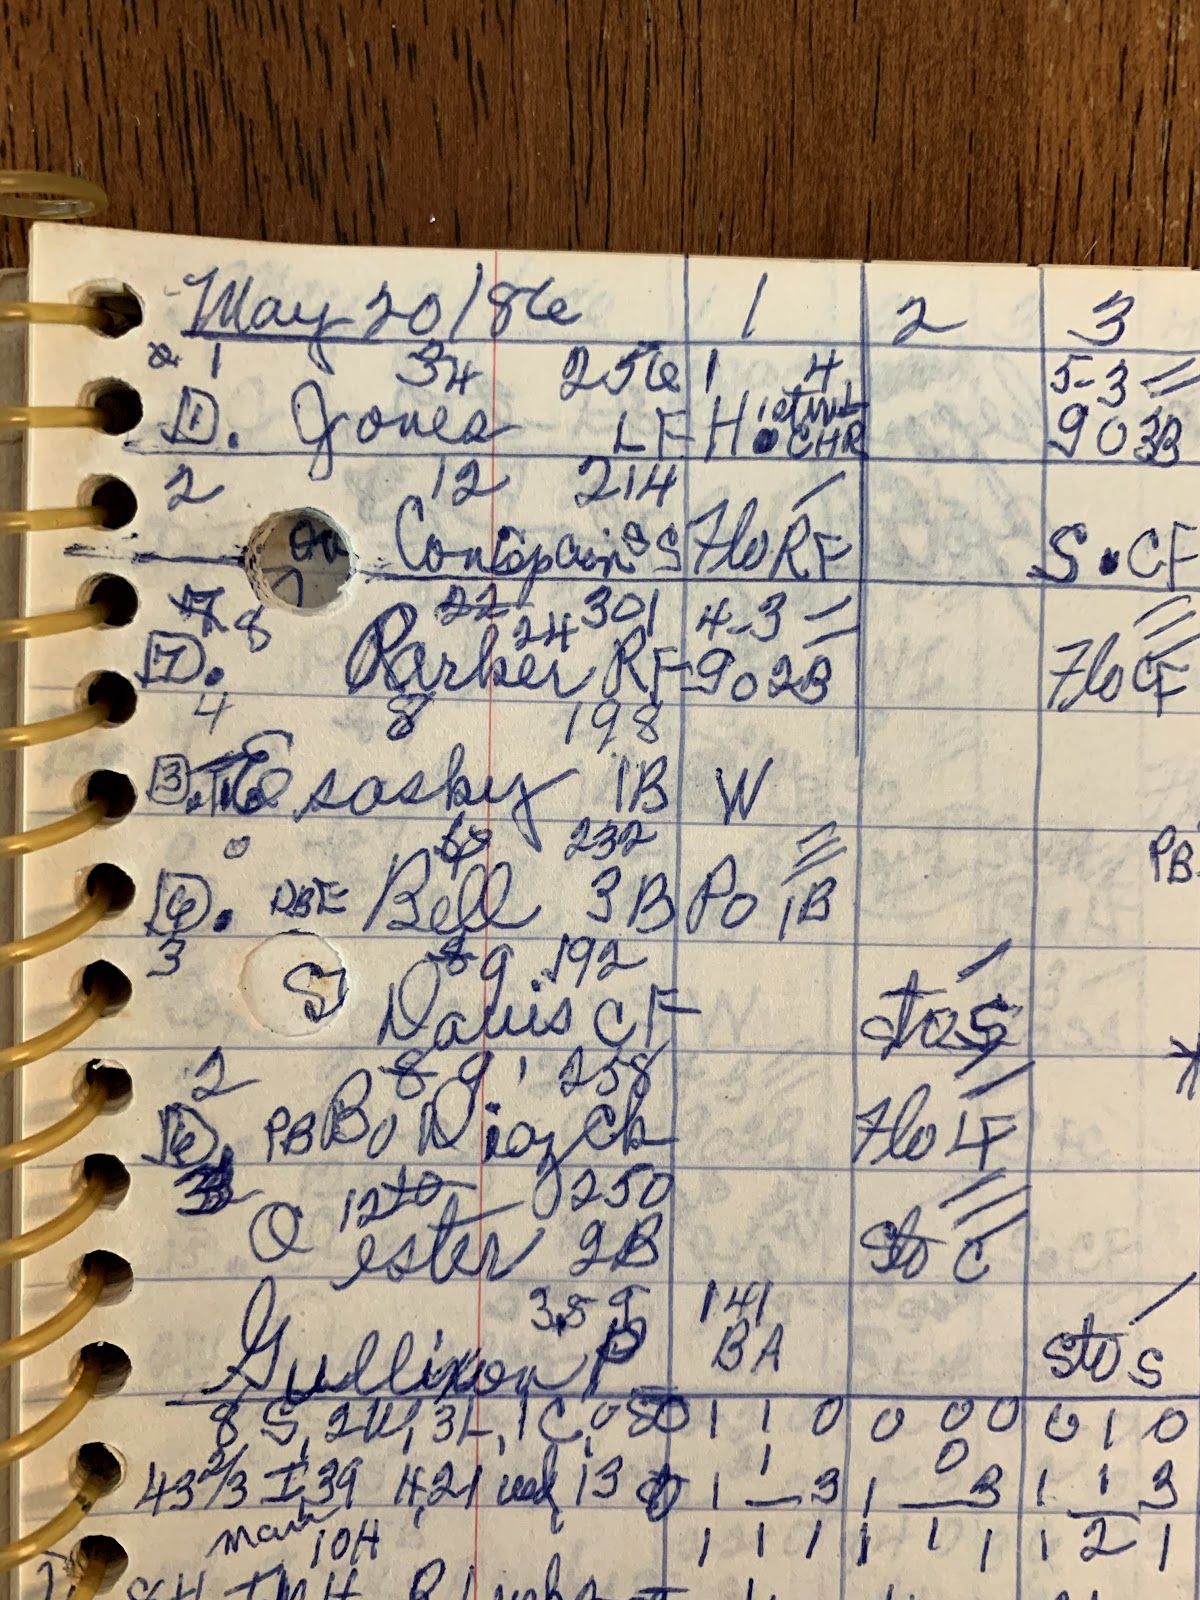 May 20/86 1 2 3
1 34 256 1 4 5-3
1. Jones LF H. CHR 9 0 3B
2 12 214
Concepcion SS Flo RF S. CF
8 22 301 4-3
7. Parker 24 RF 9 0 2B Flo CF
4 8 198
3. Esasky 1B W
0 232
6. Bell 3B Po 1B PB
3 8 9 192
S Davis CF sto S
2 8 9 258
6. PB Bo Diaz Ch Flo LF
12 10 250
O ester 2B sto C
3.59 141
Gullixon P BA sto S
8 S, 2W, 3L, 1C, 0 1 1 0 0 0 0 0 1 0
43 2/3 I, 39 H, 21 13 1 1 3 1 0 3 1 1 3
10H 1 1 1 1 1 1 1 2 1